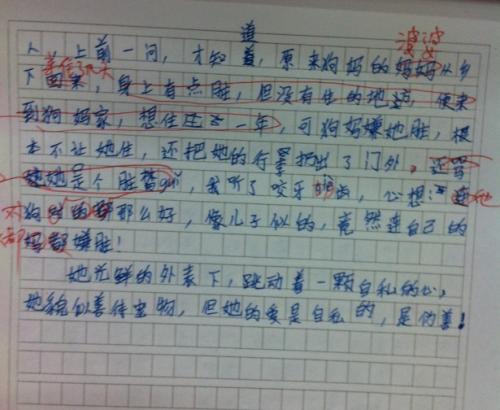 道
人，上前一问，才知着，原来狗妈的妈妈从乡
婆婆
下回来，身上有点脏，但没有住的地，便来
到狗妈家，想住一年，可狗妈嫌她脏，根
本不让她住，还把她的行李扔出了门外，还骂
她是个脏，我听了咬牙切齿，心想：连
狗的那么好，像儿子似的，竟然连自己的
妈都嫌脏！
她光鲜的外表下，跳动着一颗自私的心，
她貌似善待宠物，但她的爱是自私的，是伪善！